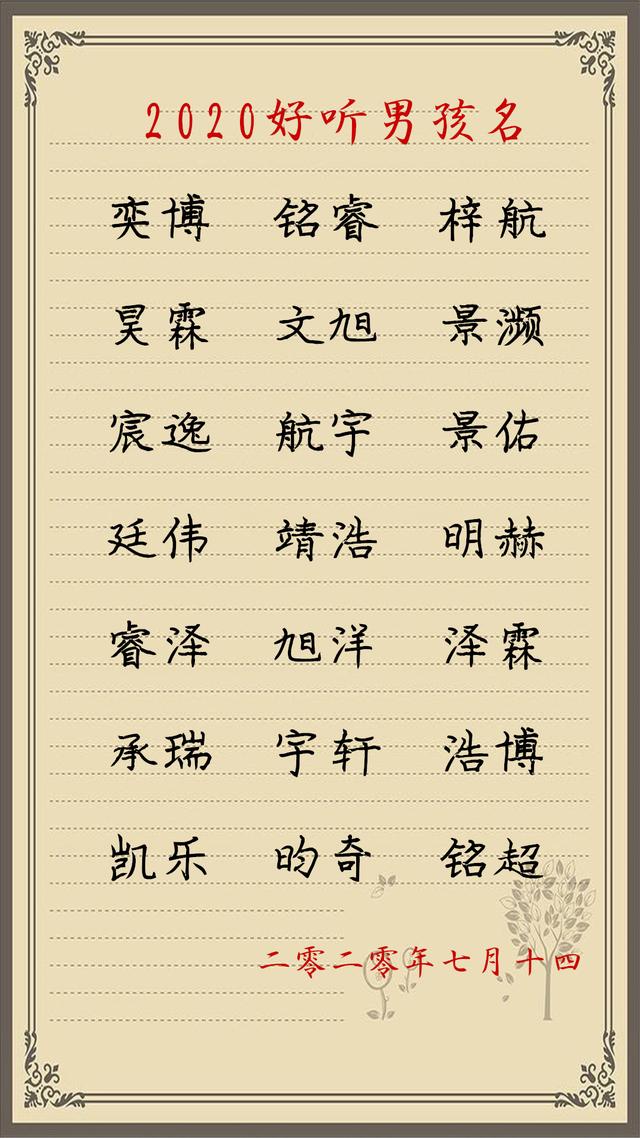 2020好听男孩名
奕博 铭睿 梓航
昊霖 文旭 景灏
宸逸 航宇 景佑
廷伟 靖浩 明赫
睿泽 旭洋 泽霖
承瑞 宇轩 浩博
凯乐 昀奇 铭超
二零二零年七月十四